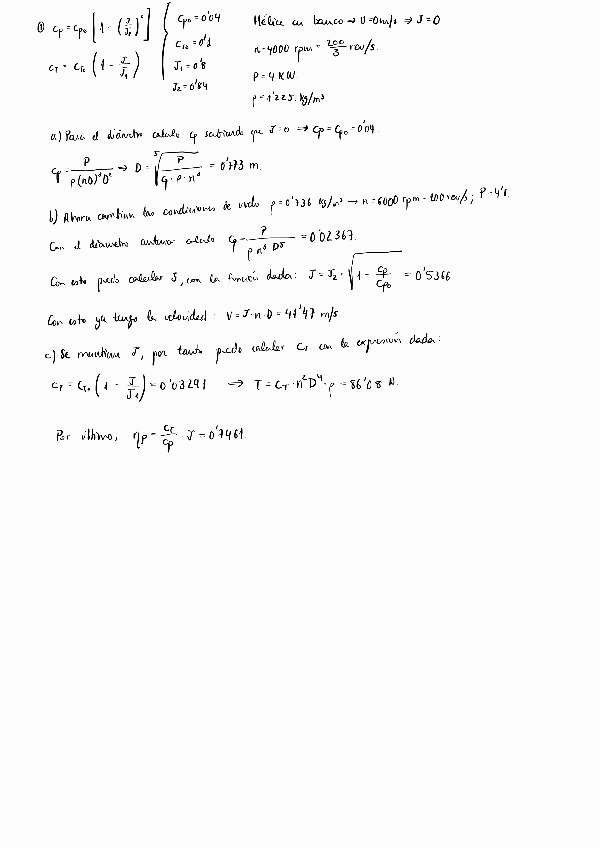 ① Cp = Cp₀ [1 - (J/J₂)²] { Cp₀ = 0'04 Hélice en banco → V = 0 m/s ⇒ J = 0
C_T = C_T₀ (1 - J/J₁) C_T₀ = 0'1 n = 4000 rpm = 200/3 rev/s.
J₁ = 0'8 P = 4 KW
J₂ = 0'84 ρ = 1'225 kg/m³
a) Para el diámetro calculo Cp sabiendo que J = 0 ⇒ Cp = Cp₀ = 0'04.
Cp = P/(ρ(nD)³D²) → D = ⁵√(P/(Cp · ρ · n³)) = 0'773 m.
b) Ahora cambian las condiciones de vuelo ρ = 0'736 kg/m³ → n = 6000 rpm = 100 rev/s; P = 4'8
Con el diámetro anterior calculo Cp = P/(ρ n³ D⁵) = 0'02367.
Con esto puedo calcular J, con la función dada: J = J₂ · √(1 - Cp/Cp₀) = 0'5366
Con esto ya tengo la velocidad: V = J · n · D = 41'47 m/s.
c) Se mantiene J, por tanto puedo calcular C_T con la expresión dada:
C_T = C_T₀ (1 - J/J₁) = 0'03291 ⇒ T = C_T · n² D⁴ · ρ = 86'08 N.
Por último, ηp = C_T/Cp · J = 0'7461.